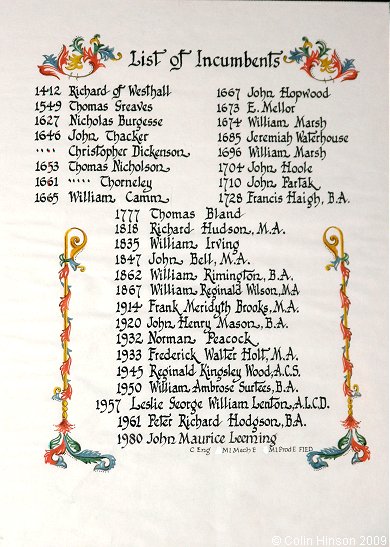 List of Incumbents
1412 Richard of Westhall
1549 Thomas Greaves
1627 Nicholas Burgesse
1646 John Thacker
" " " " Christopher Dickenson
1653 Thomas Nicholson
1661 " " " " " Thorneley
1665 William Camm
1667 John Hopwood
1673 E. Mellor
1674 William Marsh
1685 Jeremiah Waterhouse
1696 William Marsh
1704 John Hoole
1710 John Partak
1728 Francis Haigh, B.A.
1777 Thomas Bland
1818 Richard Hudson, M.A.
1835 William Irving
1847 John Bell, M.A.
1862 William Rimington, B.A.
1867 William Reginald Wilson, M.A
1914 Frank Meridyth Brooks, M.A.
1920 John Henry Mason, B.A.
1932 Norman Peacock
1933 Frederick Walter Holt, M.A.
1945 Reginald Kingsley Wood, A.C.S.
1950 William Ambrose Surtees, B.A.
1957 Leslie George William Lenton, A.L.C.D.
1961 Peter Richard Hodgson, B.A.
1980 John Maurice Leeming
C Eng MI Mech E MI Prod E FIED
© Colin Hinson 2009